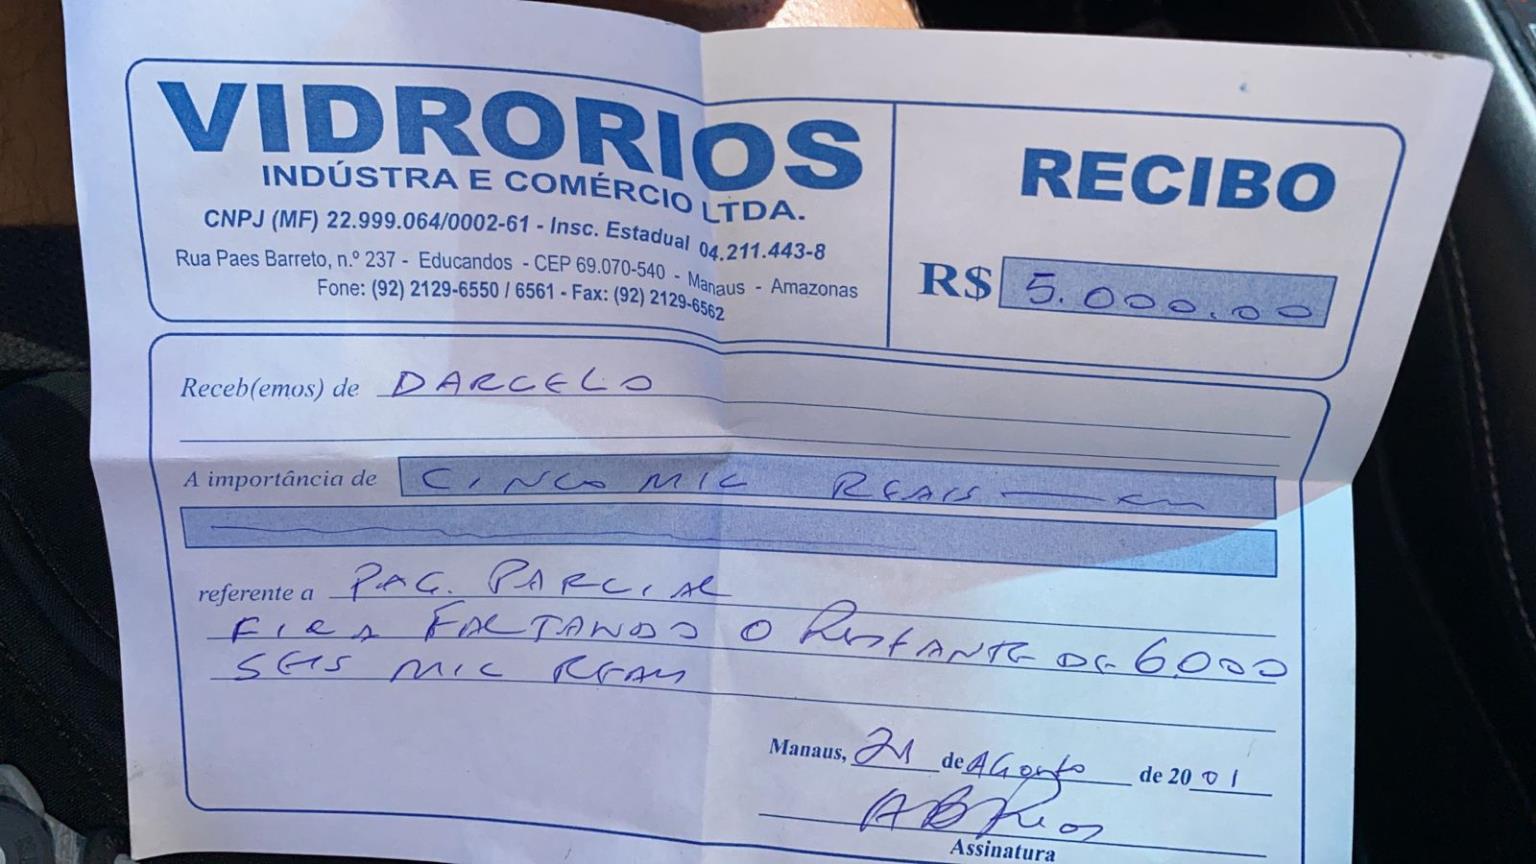 VIDRORIOS
INDÚSTRA E COMÉRCIO LTDA.
CNPJ (MF) 22.999.064/0002-61 - Insc. Estadual 04.211.443-8
Rua Paes Barreto, n.º 237 - Educandos - CEP 69.070-540 - Manaus - Amazonas
Fone: (92) 2129-6550 / 6561 - Fax: (92) 2129-6562
RECIBO
R$ 5.000,00
Receb(emos) de DARCELO
A importância de CINCO MIL REAIS
referente a PAG. PARCIAL
FICA FALTANDO O RESTANTE DE 6.000
SEIS MIL REAIS
Manaus, 21 de AGosto de 2001
Assinatura